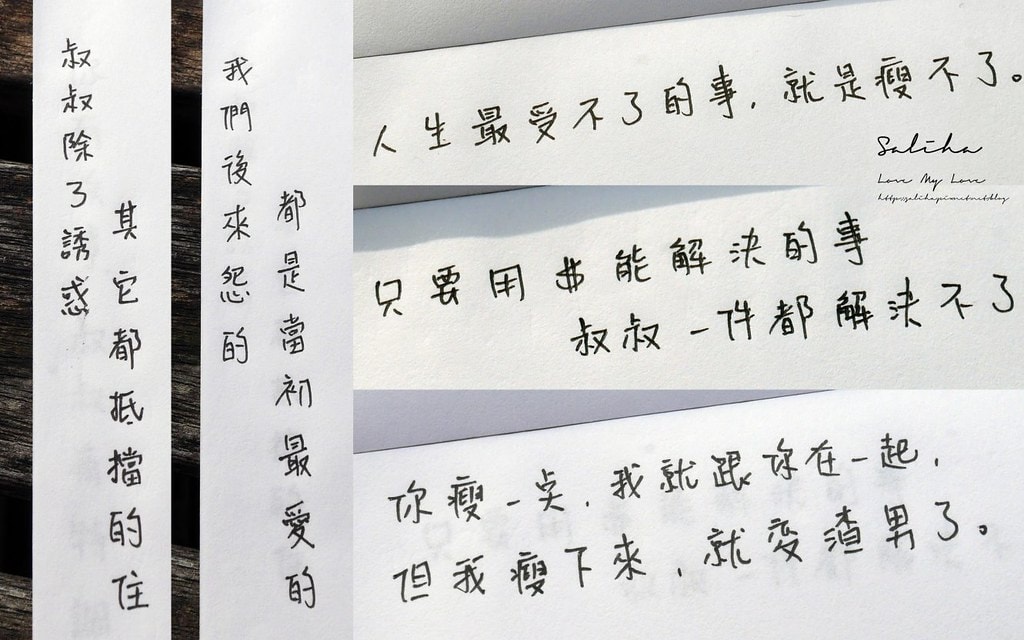 叔叔除了誘惑
其它都抵擋的住
我們後來怨的
都是當初最愛的
人生最受不了的事，就是瘦不了。
Saliha
Love My Love
只要用$能解決的事
叔叔一件都解決不了
你瘦一点，我就跟你在一起，
但我瘦下來，就变渣男了。